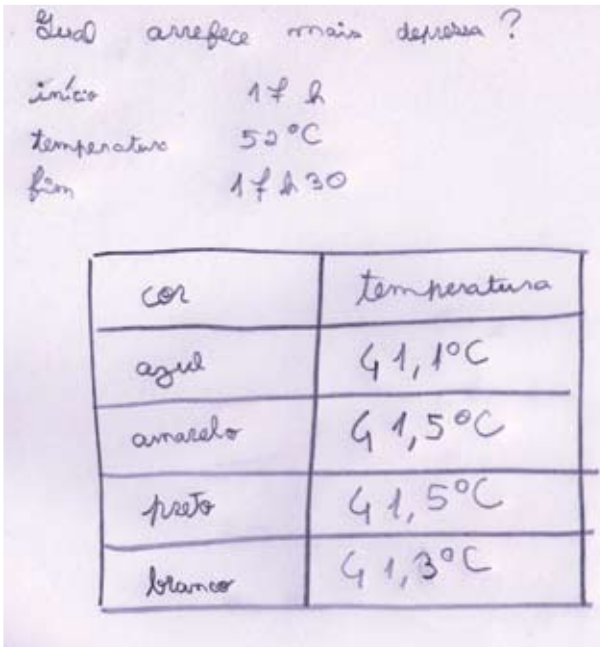 Qual arrefece mais depressa?
início 17 h
temperatura 52°C
fim 17 h 30
cor temperatura
azul 41,1°C
amarelo 41,5°C
preto 41,5°C
branco 41,3°C